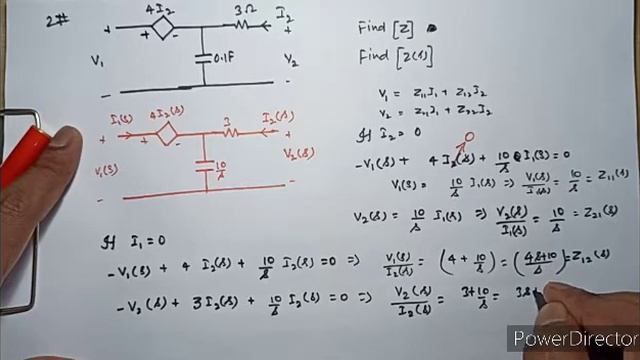 2#
4I₂ 3Ω I₂
+ + - +
V₁ 0.1F V₂
- -
Find [Z]
Find [Z(s)]
V₁ = Z₁₁I₁ + Z₁₂I₂
V₂ = Z₂₁I₁ + Z₂₂I₂
I₁(s) 4I₂(s) 3 I₂(s)
+ + - +
V₁(s) 10/s V₂(s)
- -
If I₂ = 0
-V₁(s) + 4 I₂(s) + 10/s I₁(s) = 0
0
V₁(s) = 10/s I₁(s) ⇒ V₁(s)/I₁(s) = 10/s = Z₁₁(s)
V₂(s) = 10/s I₁(s) ⇒ V₂(s)/I₁(s) = 10/s = Z₂₁(s)
If I₁ = 0
-V₁(s) + 4 I₂(s) + 10/s I₂(s) = 0 ⇒ V₁(s)/I₂(s) = (4 + 10/s) = (4s+10/s) = Z₁₂(s)
-V₂(s) + 3I₂(s) + 10/s I₂(s) = 0 ⇒ V₂(s)/I₂(s) = 3+10/s = 3s
PowerDirector